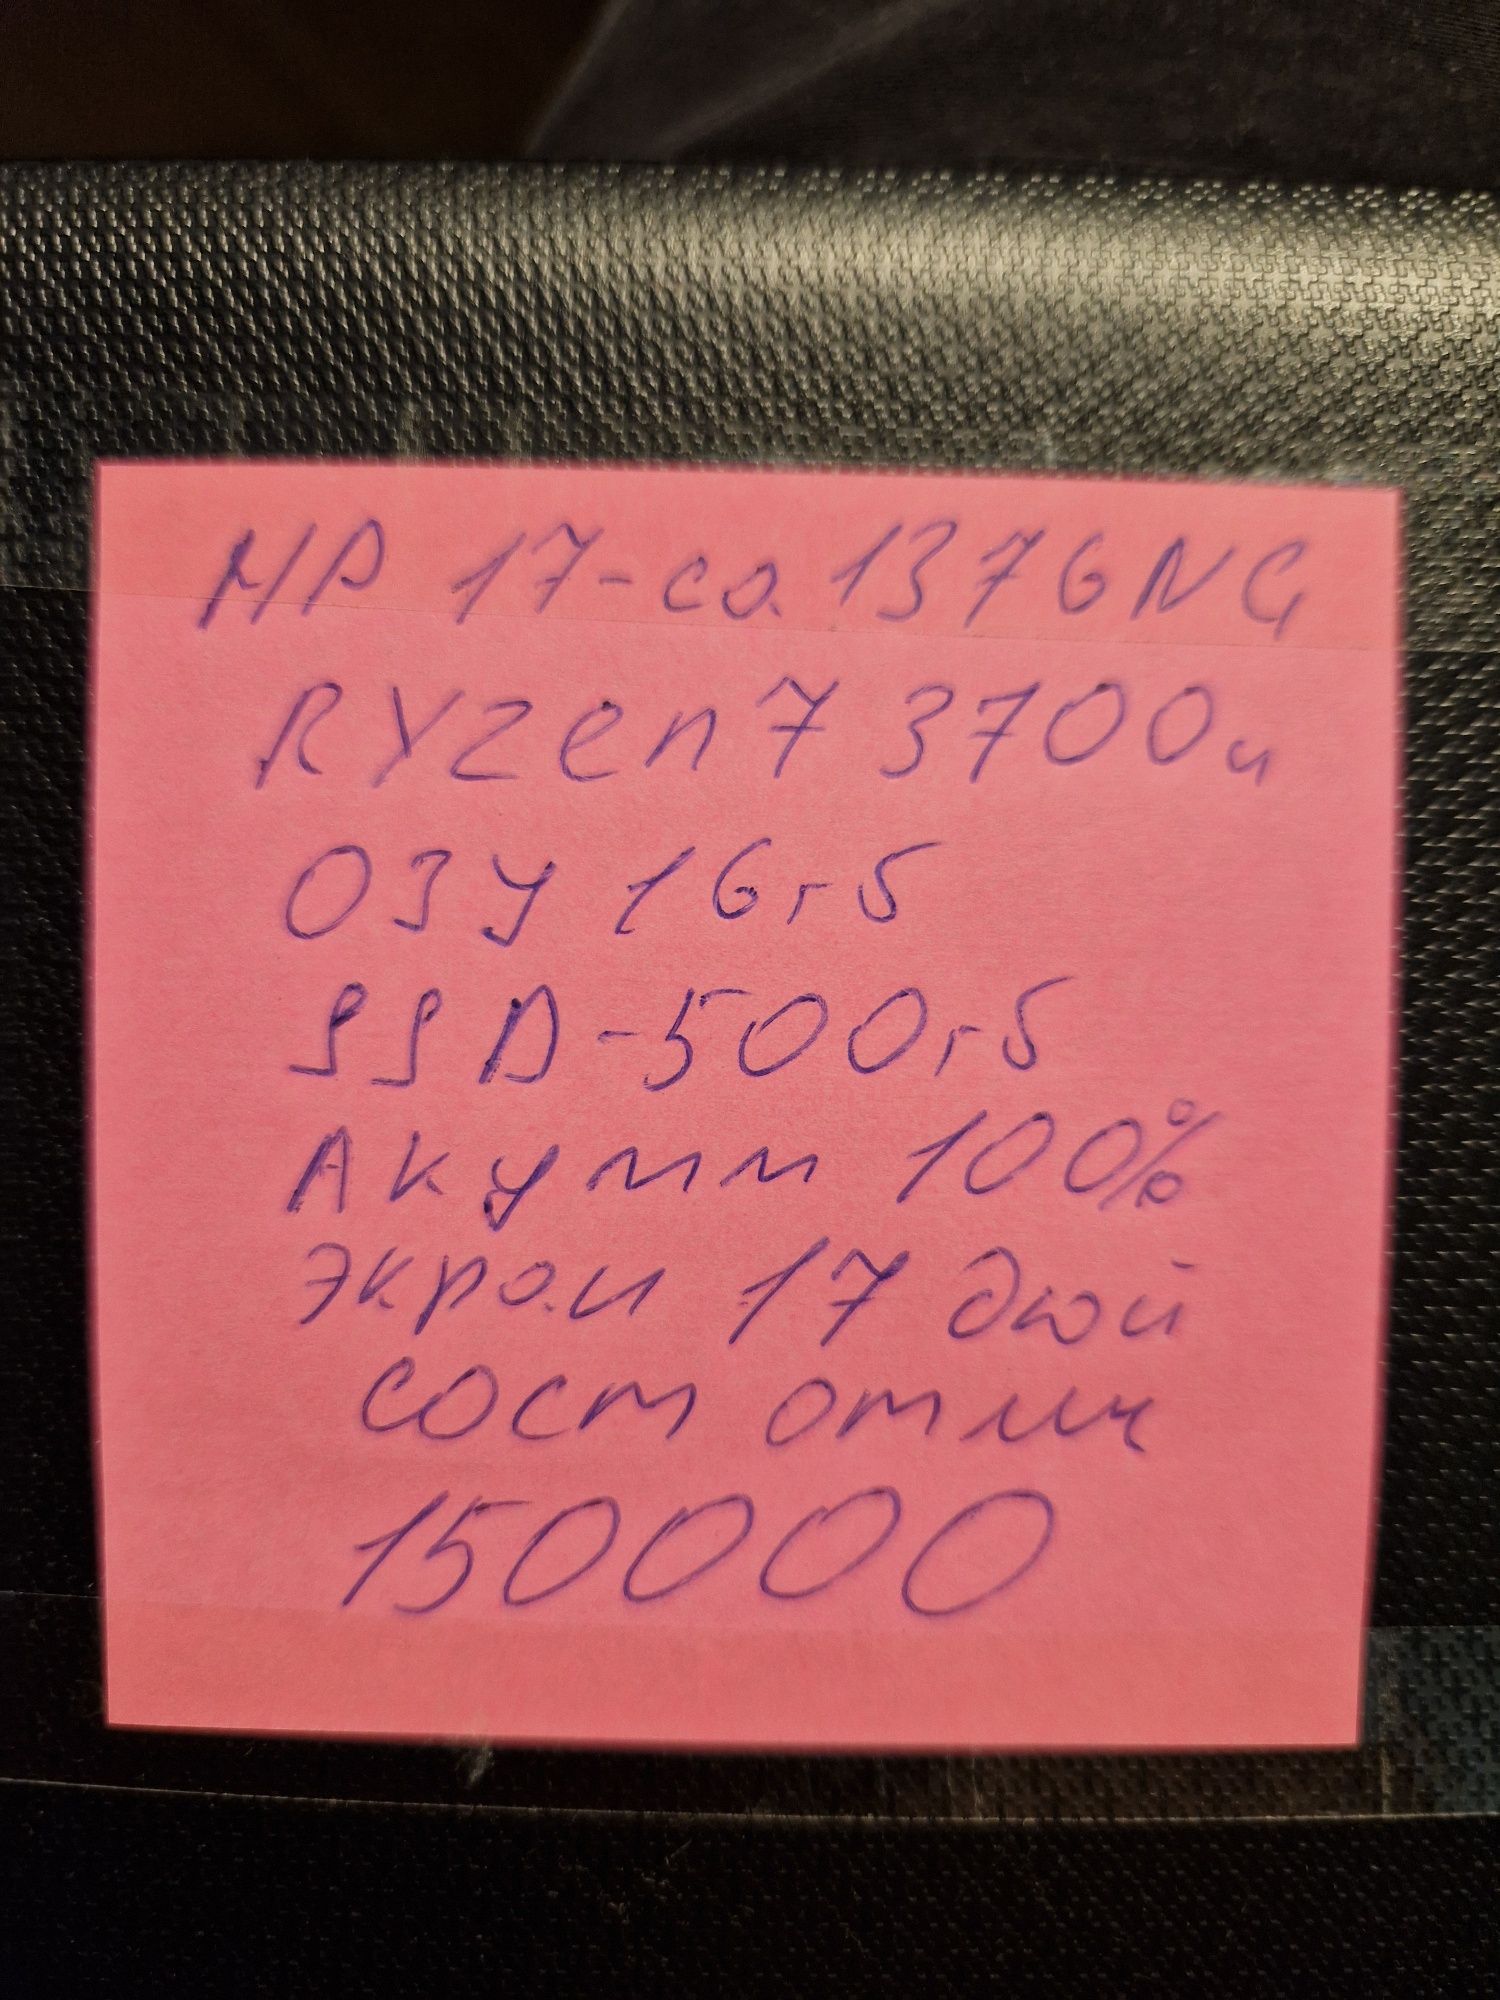 HP 17-ca 1376NG
RYzen 7 3700u
ОЗУ 16гб
SSD-500гб
Акумм 100%
экран 17 дюй
сост отлич
150000